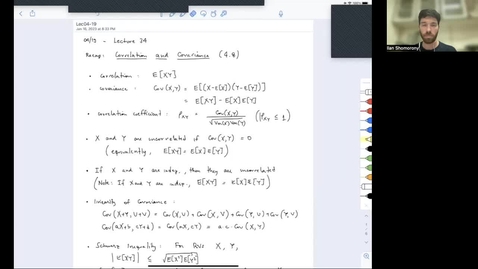 Lec04-19
Jan 15, 2023 at 8:33 PM
04/19 - Lecture 34
Recap: Correlation and Covariance (4.8)
• Correlation: E[XY]
• Covariance: Cov(X,Y) = E[(X-E[X])(Y-E[Y])]
= E[XY] - E[X]E[Y]
• Correlation coefficient: ρXY = Cov(X,Y) / √Var(X)Var(Y) (|ρXY| ≤ 1)
• X and Y are uncorrelated if Cov(X,Y) = 0
(equivalently, E[XY] = E[X]E[Y])
• If X and Y are indep., then they are uncorrelated
(Note: If X and Y are indep., E[XY] = E[X]E[Y])
• Linearity of Covariance:
Cov(X+Y, U+V) = Cov(X,U) + Cov(X,V) + Cov(Y,U) + Cov(Y,V)
Cov(aX+b, cY+d) = Cov(aX, cY) = a c · Cov(X,Y)
• Schwarz Inequality: For RVs X, Y,
|E[XY]| ≤ √E[X²]E[Y²]
Ilan Shomorony